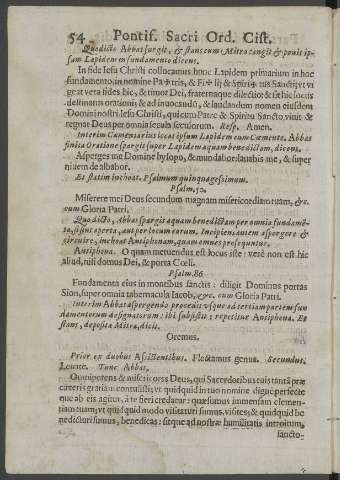 54 Pontif. Sacri Ord. Cist.
Quo dicto Abbas surgit, & stans cum Mitra tangit & ponit ip-
sam Lapidem in fundamento dicens.
In fide Iesu Christi collocamus hunc Lapidem primarium in hoc
fundamento, in nomine Pa✠tris, & Fi✠lij & Spiri✠tus Sancti, vt vi
geat vera fides hic, & timor Dei, fraternaque dilectio: & sit hic locus
destinatus orationi, & ad inuocandũ, & laudandum nomen eiusdem
Domini nostri Iesu Christi, qui cum Patre & Spiritu Sancto, viuit &
regnat Deus per omnia secula seculorum. Resp. Amen.
Interim Cæmentarius locat ipsum Lapidem cum Cæmento. Abbas
finita Oratione spargit super Lapidem aquam benedictam, dicens.
Asperges me Domine hysopo, & mundabor: lauabis me, & super
niuem dealbabor.
Et statim inchoat. Psalmum quinquagesimum.
Psalm. 50.
Miserere mei Deus secundum magnam misericordiam tuam, &c.
cum Gloria Patri.
Quo dicto, Abbas spargit aquam benedictam per omnia fundamē-
ta, si sint aperta, aut per locum eorum. Incipiens autem aspergere &
circuire, inchoat Antiphonam, quam omnes prosequuntur.
Antiphona. O quam metuendus est locus iste: verè non est hic
aliud, nisi domus Dei, & porta Cœli.
Psalm. 86.
Fundamenta eius in montibus sanctis: diligit Dominus portas
Sion, super omnia tabernacula Iacob, &c. cum Gloria Patri.
Interim Abbas aspergendo procedit vsque ad tertiam partem fun
damentorum designatorum: ibi subsistit; repetitur Antiphona. Et
stans, deposita Mitra, dicit.
Oremus.
Prior ex duobus Assistentibus. Flectamus genua. Secundus.
Leuate. Tunc Abbas.
Omnipotens & misericors Deus, qui Sacerdotibus tuis tantã præ
cæteris gratiam contulisti, vt quidquid in tuo nomine dignè perfecte
que ab eis agitur, à te fieri credatur: quæsumus immensam clemen-
tiam tuam; vt quidquid modo visitaturi sumus, visites; & quidquid be
nedicturi sumus, benedicas: sitque ad nostræ humilitatis introitum,
sancto-